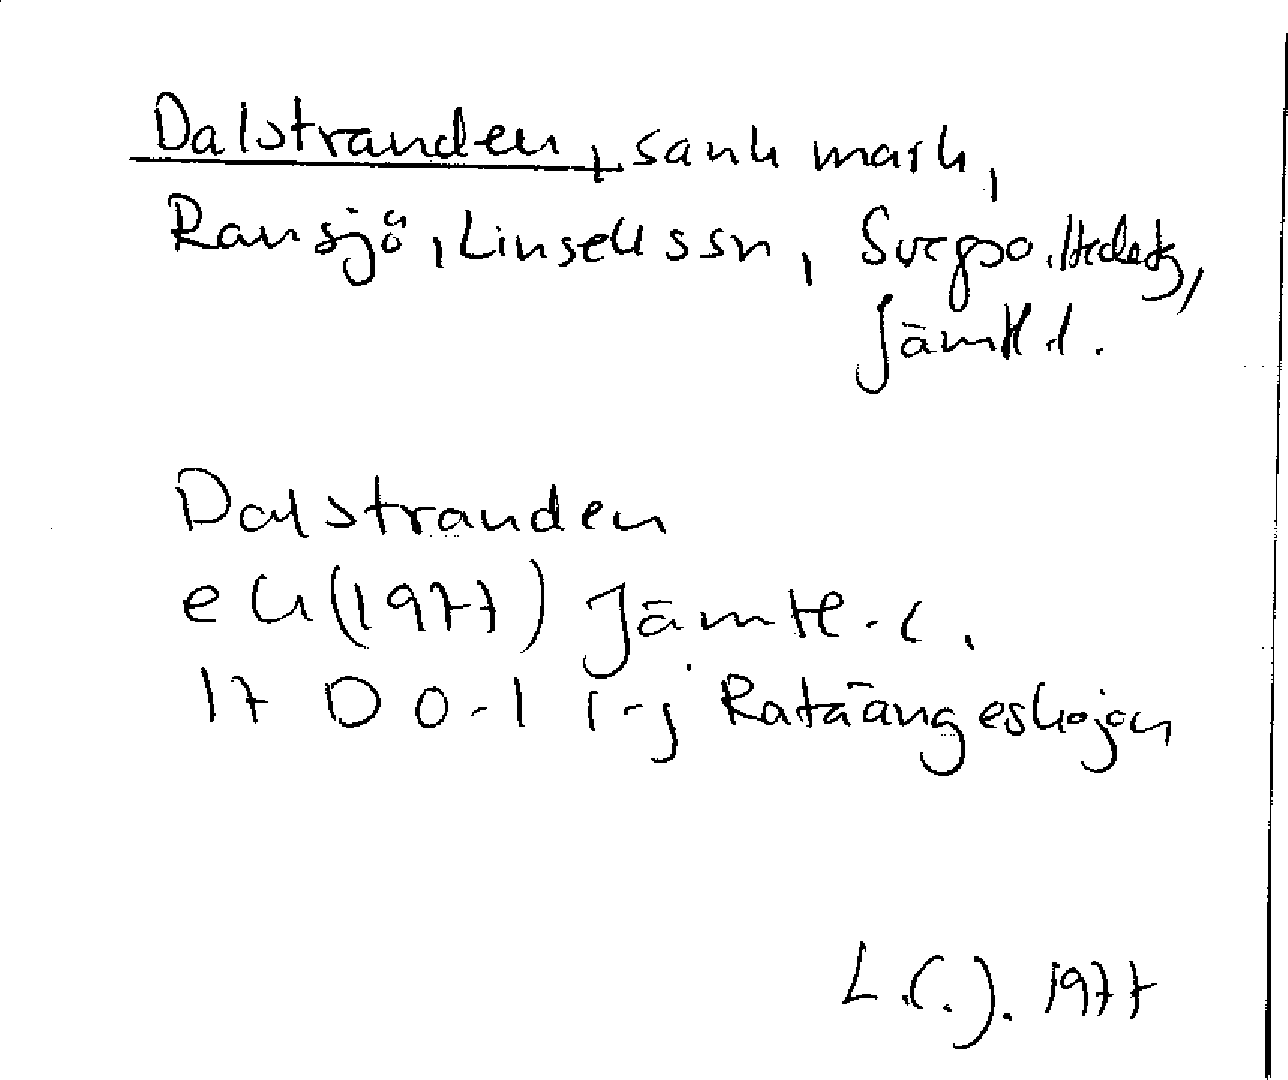 Dalstranden, sank mark,
Ransjö, Linsell ssn, Svegs o. Hedetg,
Jämtl. l.
Dalstranden
ek (1977) Jämtl. l.
17 D 0-1 i-j Rataängeskojan
L.(.). 1977